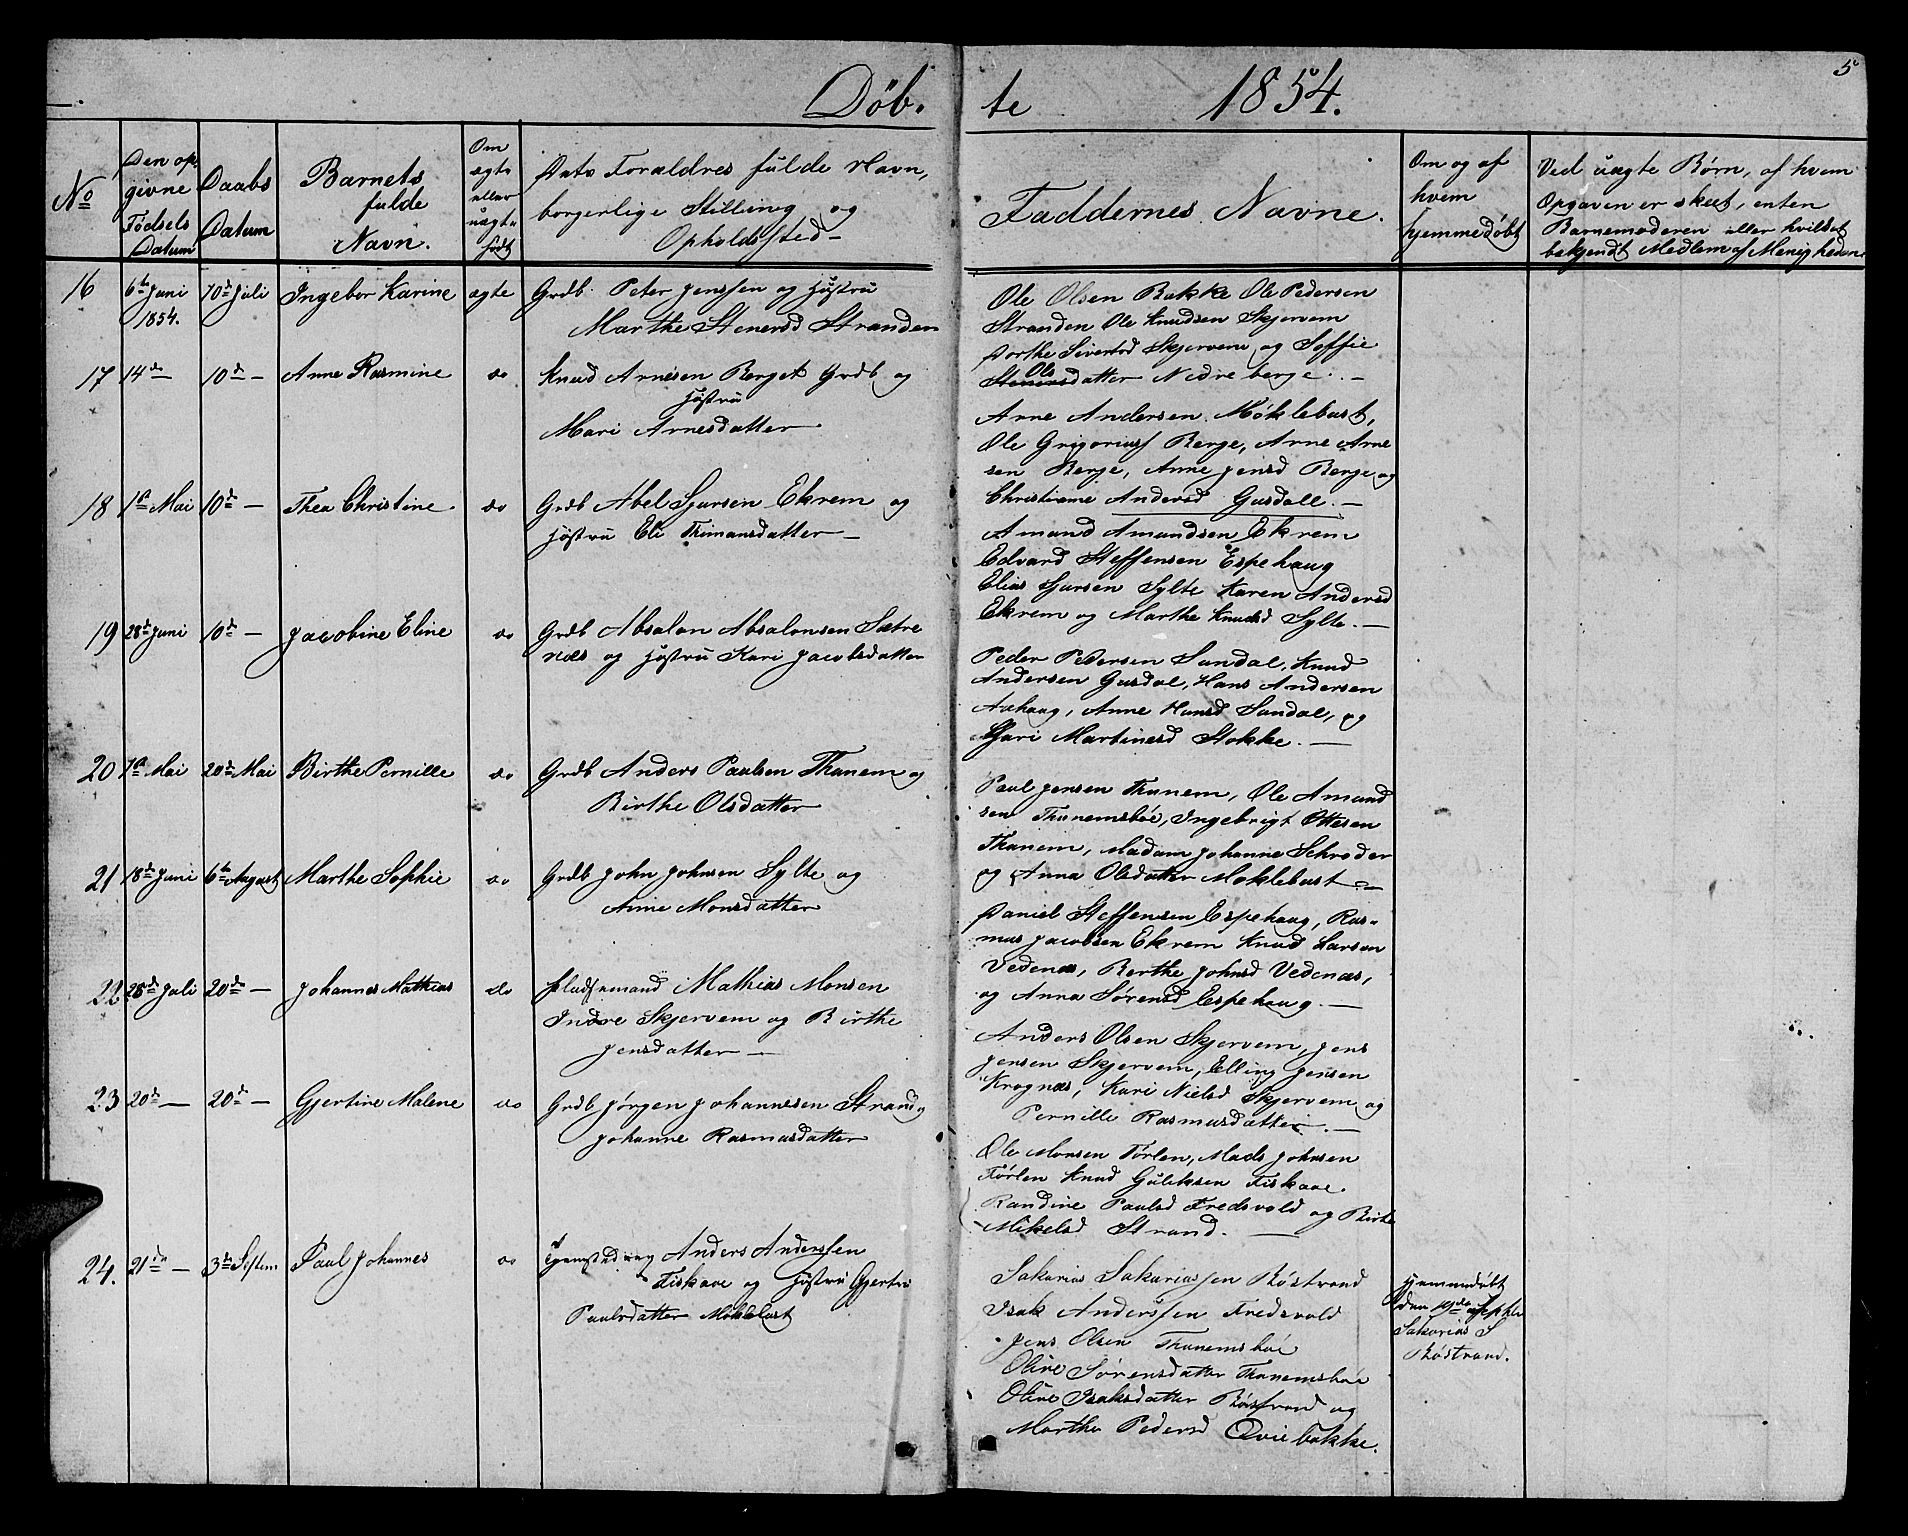 Döb. te 1854. 5
No
Den op
givne
Fødsels
Datum
Daabs
Datum
Barnets
fulde
Navn.
Om
ægte
eller
uægte
født
Dets Forældres fulde Navn,
borgerlige Stilling og
Opholdsted
Faddernes Navne.
Om og af
hvem
hjemmedøbt
Ved uægte Børn, af hvem
Opgaven er skeet, enten
Barnemoderen eller hvilket
bekjendt Medlem af Menigheden
16 6te Juni 10de Juli Ingebor Karine ægte Grdb. Peter Jenssen og Hustru
1854. Marthe Stenersd Stranden
Ole Olsen Bakke Ole Pedersen
Stranden Ole Knudsen Skjervem
Dorthe Sivertsd Skjervem og Soffie
Ols
Stenersdatter Nedre berge. —
17 14de — 10de — Anne Rasmine do Knud Arnesen Berget Grdb og
Hustru
Mari Arnesdatter
Arne Andersen Möklebust,
Ole Grigoriuss Berge, Arne Arne
sen Berge, Anne Jensd Berge og
Christiane Andersd Gusdall. —
18 1ste Mai 10de — Thea Christine do Grdb Abel Sjursen Ekrem og
Hustru Eli Thimansdatter —
Amund Amundsen Ekrem
Edvard Steffensen Espehaug
Elias Sjursen Sylte Karen Andersd
Ekrem og Marthe Knudsd Sylte. —
19 28de Juni 10de — Jacobine Eline do Grdb Absalon Absalonsen Sætre
næs og Hustru Kari Jacobsdatter
Peder Pedersen Sandal, Knud
Andersen Gusdal, Hans Andersen
Aahaug, Anne Hansd Sandal, og
Kari Martinesd Stokke. —
20 1ste Mai 20de Mai Birthe Pernille do Grdb Anders Paulsen Thunem og
Birthe Olsdatter
Paul Jensen Thunem, Ole Amund
sen Thunemsböe, Ingebrigt Ottesen
Thunem, Madam Johanne Schrøder
og Anna Olsdatter Moklebust. —
21 18de Juni 6te August Marthe Sophie do Grdb John Johnsen Sylte og
Anne Monsdatter
Daniel Steffensen Espehaug, Ras-
mus Jacobsen Ekrem Knud Larsen
Vedenæs, Berthe Johnsd Vedenæs,
og Anna Sörensd Espehaug. —
22 28de Juli 20de — Johannes Mathias do Pladsemand Mathias Monsen
Indre Skjervem og Birthe
Jensdatter —
Anders Olsen Skjervem, Jens
Jensen Skjervem, Elling Jensen
Krognæs, Kari Nielsd Skjervem og
Pernille Rasmusdatter. —
23 20de — 20de — Gjertine Malene do Grdb Jørgen Johannesen Strand og
Johanne Rasmusdatter
Ole Monsen Förlen, Mads Johnsen
Förlen Knud Guliksen Fiskaae.
Randine Paulsd Fredsvold og Birte
Mikelsd Strand. —
24. 21de — 3de Septem Paul Johannes do Anders Anderssen
Fiskaae og Hustru Gjertru
Paulsdatter Möklebust
Sakarias Sakariassen Röstrand
Isak Anderssen Fredsvold
Jens Olsen Thunemsböe
Oline Sörensdatter Thunemsböe
Oline Isaksdatter Röstrand og
Marthe Pedersd Qviebakke.
Hjemmedøbt
den
Sakarias S
Röstrand.